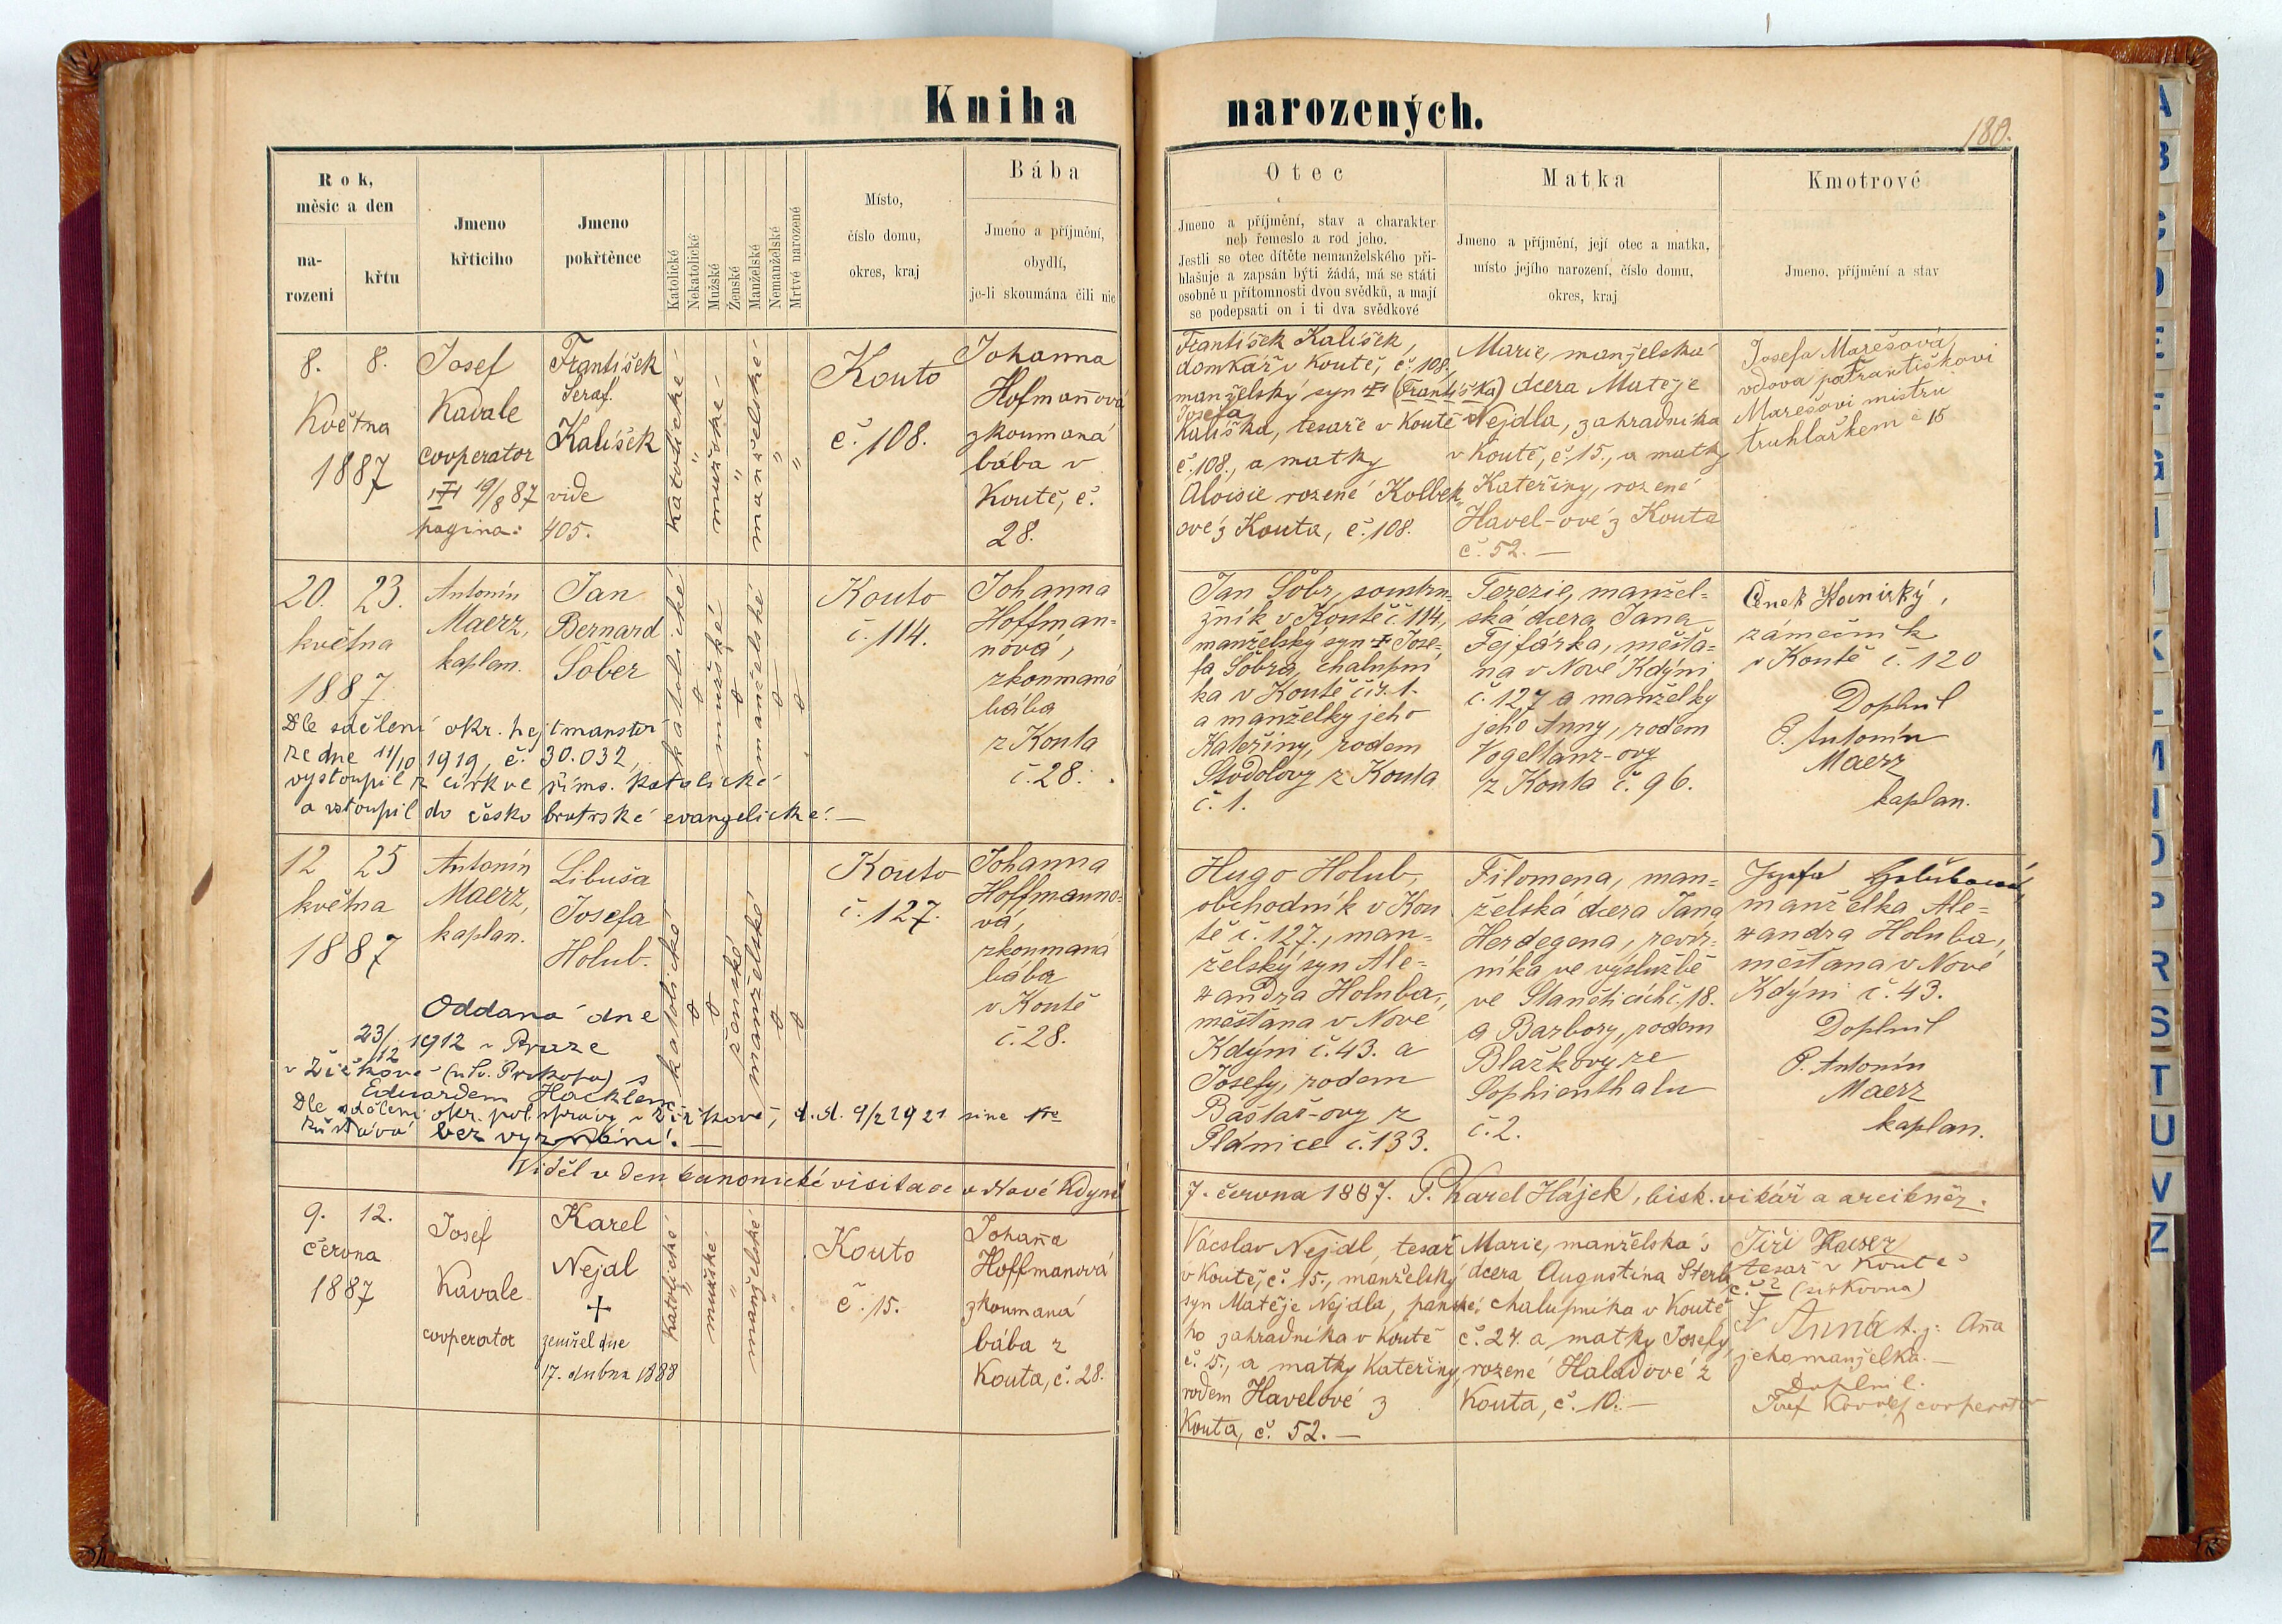 Kniha narozených.
180.
Rok,
měsíc a den
na-
rození
křtu
Jmeno
křticího
Jmeno
pokřtěnce
Katolické
Nekatolické
Mužské
Ženské
Manželské
Nemanželské
Mrtvě narozené
Místo,
číslo domu,
okres, kraj
Bába
Jmeno a příjmění,
obydlí,
je-li skoumána čili nic
Otec
Jmeno a příjmění, stav a charakter
neb řemeslo a rod jeho.
Jestli se otec dítěte nemanželského při-
hlašuje a zapsán býti žádá, má se státi
osobně u přítomnosti dvou svědků, a mají
se podepsati on i ti dva svědkové
Matka
Jmeno a příjmění, její otec a matka,
místo jejího narození, číslo domu,
okres, kraj
Kmotrové
Jmeno, příjmění a stav
8. 8.
Května
1887
Josef
Kavale
cooperator
19/8 87 vide
pagina: 405.
František
Seraf.
Kalíšek
katolické
"
mužské
"
manželské
"
"
Kouto
č. 108.
Johanna
Hofman̄ová
zkoumaná
bába v
Koutě, č.
28.
František Kalíšek,
domkář v Koutě, č. 108.,
manželský syn (Františka)
Josefa
Kalíška, tesaře v Koutě
č. 108., a matky
Aloisie rozené Kolbek-
ové z Kouta, č. 108.
Marie, manželská
dcera Matěje
Nejdla, zahradníka
v Koutě, č. 15., a matky
Kateřiny, rozené
Havel-ové z Kouta
č. 52. —
Josefa Marešová,
vdova po Františkovi
Marešovi mistru
truhlářském č 15
20. 23.
května
1887
Antonín
Maerz,
kaplan.
Jan
Bernard
Šöber
katolické
0
mužské
0
manželské
0
0
Kouto
č. 114.
Johanna
Hoffman-
nová,
zkoumaná
bába
z Kouta
č. 28.
Dle sdělení okr. hejtmanství
ze dne 11/10 1919, č. 30.032,
vystoupil z církve říms. katolické
a vstoupil do česko bratrské evangelické. —
Jan Šöbr, soustru-
žník v Koutě č. 114,
manželský syn Jose-
fa Šöbra, chalupní
ka v Koutě čís. 1.
a manželky jeho
Kateřiny, rodem
Stodolovy z Kouta
č. 1.
Terezie, manžel-
ská dcera Jana
Fejfárka, měšťa-
na v Nové Kdýni
č. 127 a manželky
jeho Anny, rodem
Vogeltanz-ovy
z Kouta č. 96.
Čeněk Hanický,
zámečník
v Koutě č. 120
Doplnil
P. Antonín
Maerz
kaplan.
12 25
května
1887
Antonín
Maerz,
kaplan.
Libuša
Josefa
Holub.
katolické
0
0
ženské
manželské
0
0
Kouto
č. 127.
Johanna
Hoffmanno-
vá,
zkoumaná
bába
v Koutě
č. 28.
Oddaná dne
23/12 1912 v Praze
v Žižkově (u sv. Prokopa) s
Eduardem Häcklem
Dle sdělení okr. pol. správy v Žižkově, d.d. 9/2 1921 sine No
zůstává bez vyznání. —
Hugo Holub,
obchodník v Kou
tě č. 127., man-
želský syn Ale-
xandra Holuba,
měšťana v Nové
Kdýni č. 43. a
Josefy, rodem
Baštař-ovy z
Plánice č. 133.
Filomena, man-
želská dcera Jana
Herdegena, revír-
níka ve výslužbě
ve Slančticích č. 18.
a Barbory, rodem
Blažkovy ze
Sophienthalu
č. 2.
Josefa Holubová,
manželka Ale-
xandra Holuba,
měšťana v Nové
Kdýni č. 43.
Doplnil
P. Antonín
Maerz
kaplan.
Viděl v den canonické visitace v Nové Kdyni 7. června 1887. P. Karel Hájek, bisk. vikář a arcikněz.
9. 12.
června
1887
Josef
Kavale
cooperator
Karel
Nejdl
+
zemřel dne
17. dubna 1888
katolické
"
mužské
"
manželské
"
Kouto
č. 15.
Johan̄a
Hoffmanová
zkoumaná
bába z
Kouta, č. 28.
Vácslav Nejdl, tesař
v Koutě, č. 15., manželský
syn Matěje Nejdla, panské-
ho zahradníka v Koutě
č. 15., a matky Kateřiny,
rodem Havelové z
Kouta, č. 52. —
Marie, manželská
dcera Augustina Sterb
chalupníka v Koutě
č. 24. a matky Josefy,
rozené Haladové z
Kouta, č. 10. —
Jiří Hauser
tesař v Koutě
č. 2 (církovna)
Anna t. j. An̄a
jeho manželka. —
Doplnil.
Josef Kavale cooperator